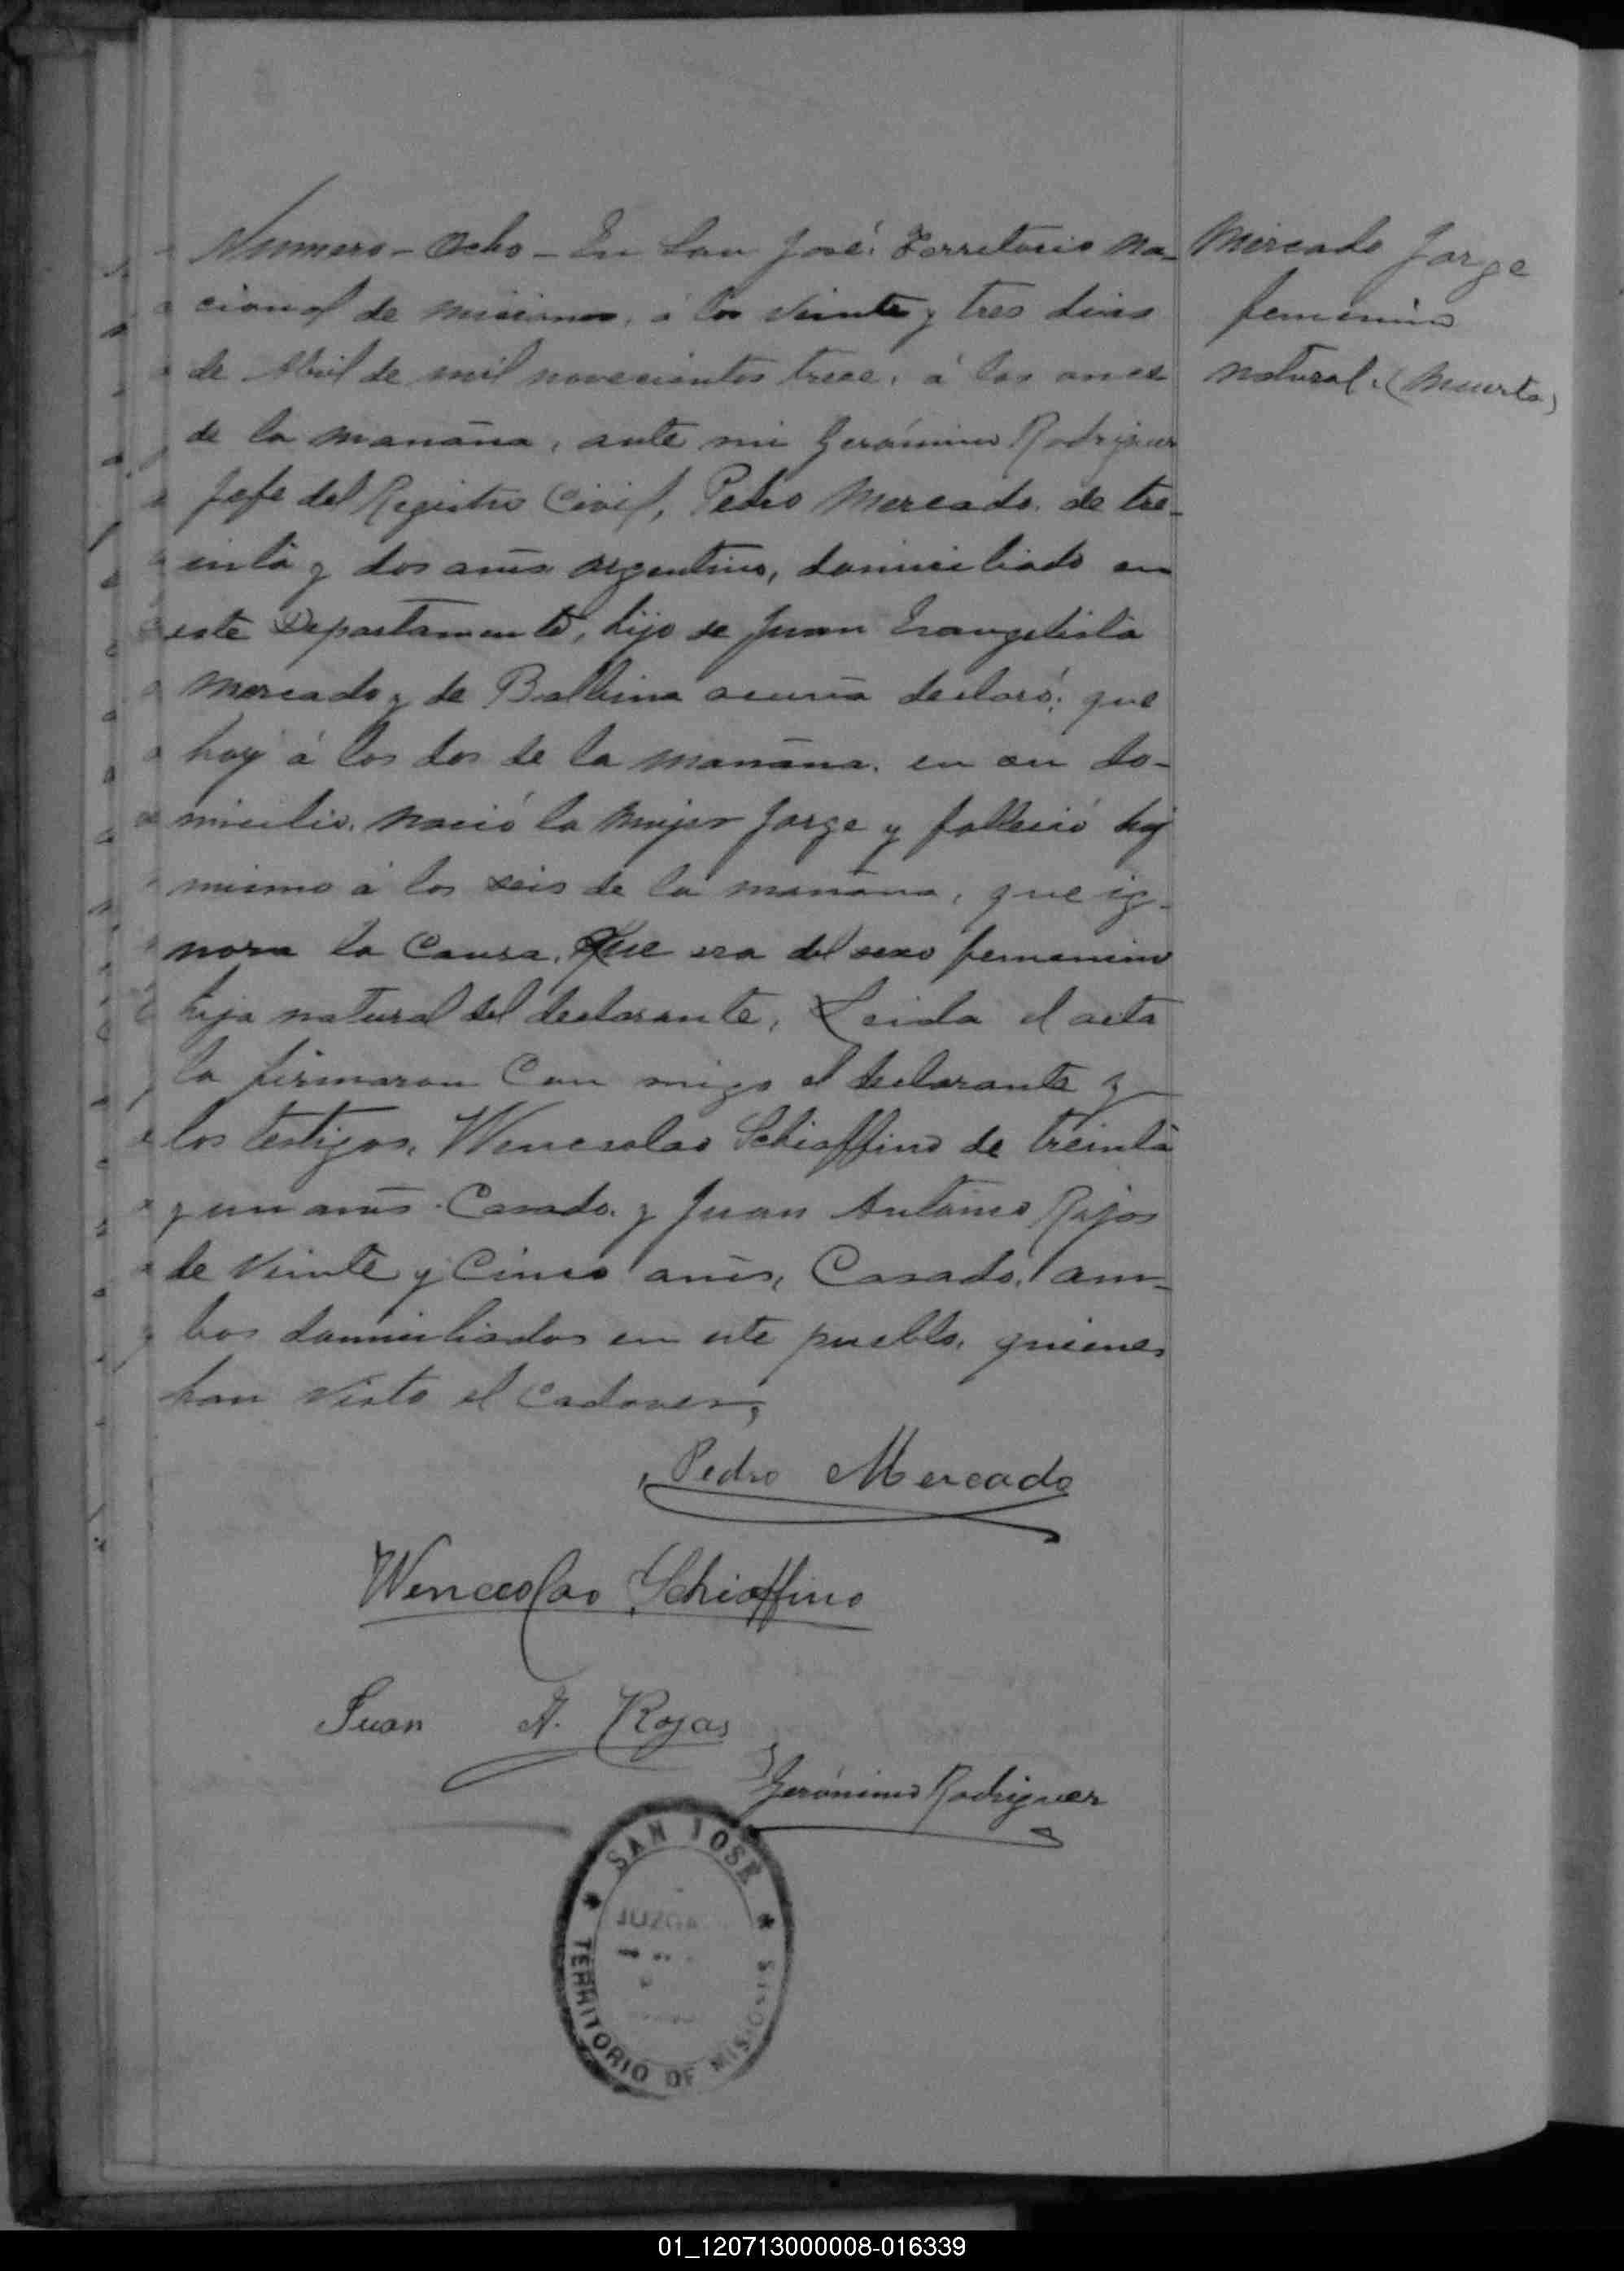 Numero - Ocho - En San José. Territorio Na-
cional de Misiones, á los veinte y tres dias
de Abril de mil novecientos trece, á las once
de la mañana, ante mi Gerónimo Rodriguez
Jefe del Registro Civil, Pedro Mercado. de tre-
inta y dos años argentino, domiciliado en
este Departamento, hijo de Juan Evangelista
Mercado y de Balbina Acuña declaró; que
hoy á las dos de la mañana. en su do-
micilio. nació la mujer Jorge y falleció hoy
mismo á las seis de la mañana, que ig-
nora la Causa, Que era del sexo femenino
hija natural del declarante, Leida el acta
la firmaron Con migo el declarante y
los testigos, Wenceslao Schiaffino de treinta
y un años. Casado. y Juan Antonio Rojas
de Veinte y Cinco años, Casado, am-
bos domiciliados en este pueblo, quienes
han Visto el Cadaver,
Pedro Mercado
Wenceslao Schiaffino
Juan A. Rojas
Gerónimo Rodriguez
Mercado Jorge
femenino
natural. (Muerta)
SAN JOSÉ
JUZGA
TERRITORIO DE MISIONES
01_120713000008-016339